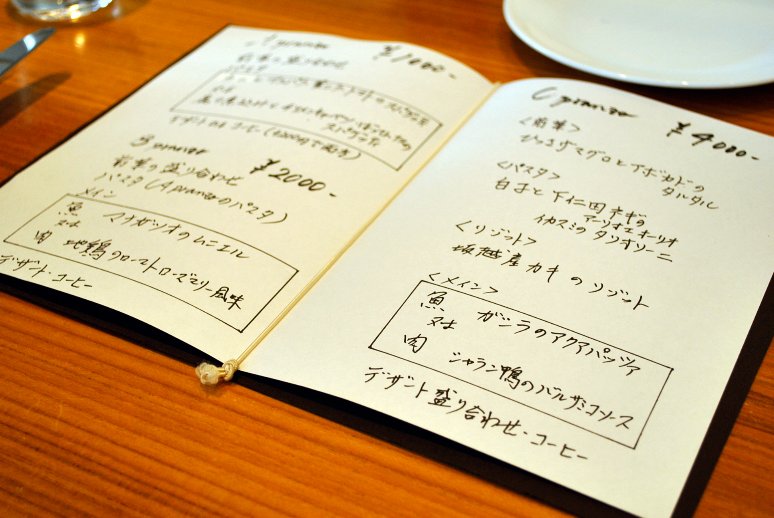 A pranzo ¥1000-
前菜の盛り合わせ
パスタ
又は
デザート 又は コーヒー
B pranzo ¥2000-
前菜の盛り合わせ
パスタ (A pranzoのパスタ)
メイン
魚 マナガツオのムニエル
又は
肉 地鶏のローストローズマリー風味
デザート・コーヒー
C pranzo ¥4000-
<前菜>
マグロとアボカドの
タルタル
<パスタ>
白子と下仁田ネギの
アーリオエオーリオ
イカスミのタリオリーニ
<リゾット>
坂越産カキのリゾット
<メイン>
魚 ガシラのアクアパッツァ
又は
肉 シャラン鴨のバルサミコソース
デザート盛り合わせ・コーヒー